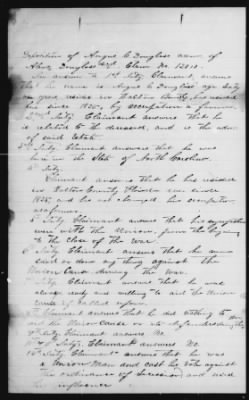 Deposition of Angus C Douglass admr. of
Douglass Claim No.
In answer to 1st Inty. Claimant, answers
that his name is Angus C Douglass age sixty
in Walton County, has resided
here since 1825, by occupation a farmer
2nd Inty. Claimant answers that he
is related to the deceased, and is the admr
of said Estate.
3rd Inty. Claimant answers that he was
born in the State of North Carolina
4th Inty.
Claimant answers that he has resided
in Walton County Florida ever since
1825, and has not changed his occupation
as farmer
5 Inty. Claimant answers that his sympathies
were with the Union, from the beginning
to the close of the war.
Inty. Claimant answers that he never
did or done any thing against the
Union Cause during the war.
Inty. Claimant answers that he was
always ready and willing to aid the Union
cause if called upon.
Claimant answers that he did nothing to
the Union Cause or its
Inty. Claimant answers No.
Intys. Claimant answers No.
Inty. Claimant answers that he was
a Union Man and cast his vote against
the ordinance of Secession and used
his influence